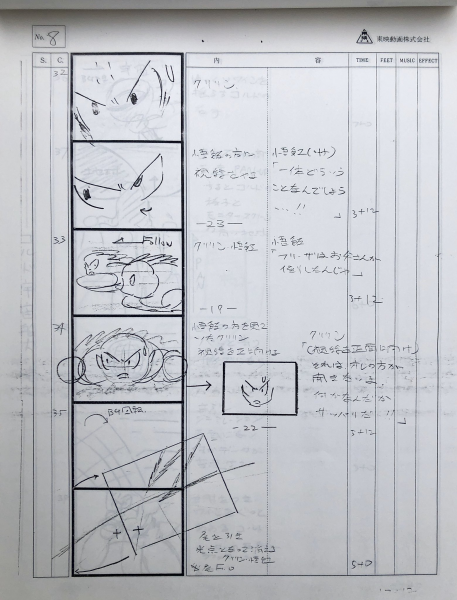 No. 8
東映動画株式会社
S. C. 内 容 TIME FEET MUSIC EFFECT
32
クリリン
悟飯の方に
視線だけ
悟飯(オフ)
「一体どういう
ことなんでしょう
…!!
」
3+12
-23-
33
Follow
クリリン 悟飯
悟飯
「フリーザはお父さんが
倒したんじゃ
3+12
-19-
34
悟飯の方を図2
いたクリリン
視線を正面に向け
クリリン
「(視線を正面に向け)
それは オレの方が
聞きたいよ
何がなんだか
サッパリだ!!
」
-22-
3+12
35
BG回転
クリリン 悟飯
F.O
5+0